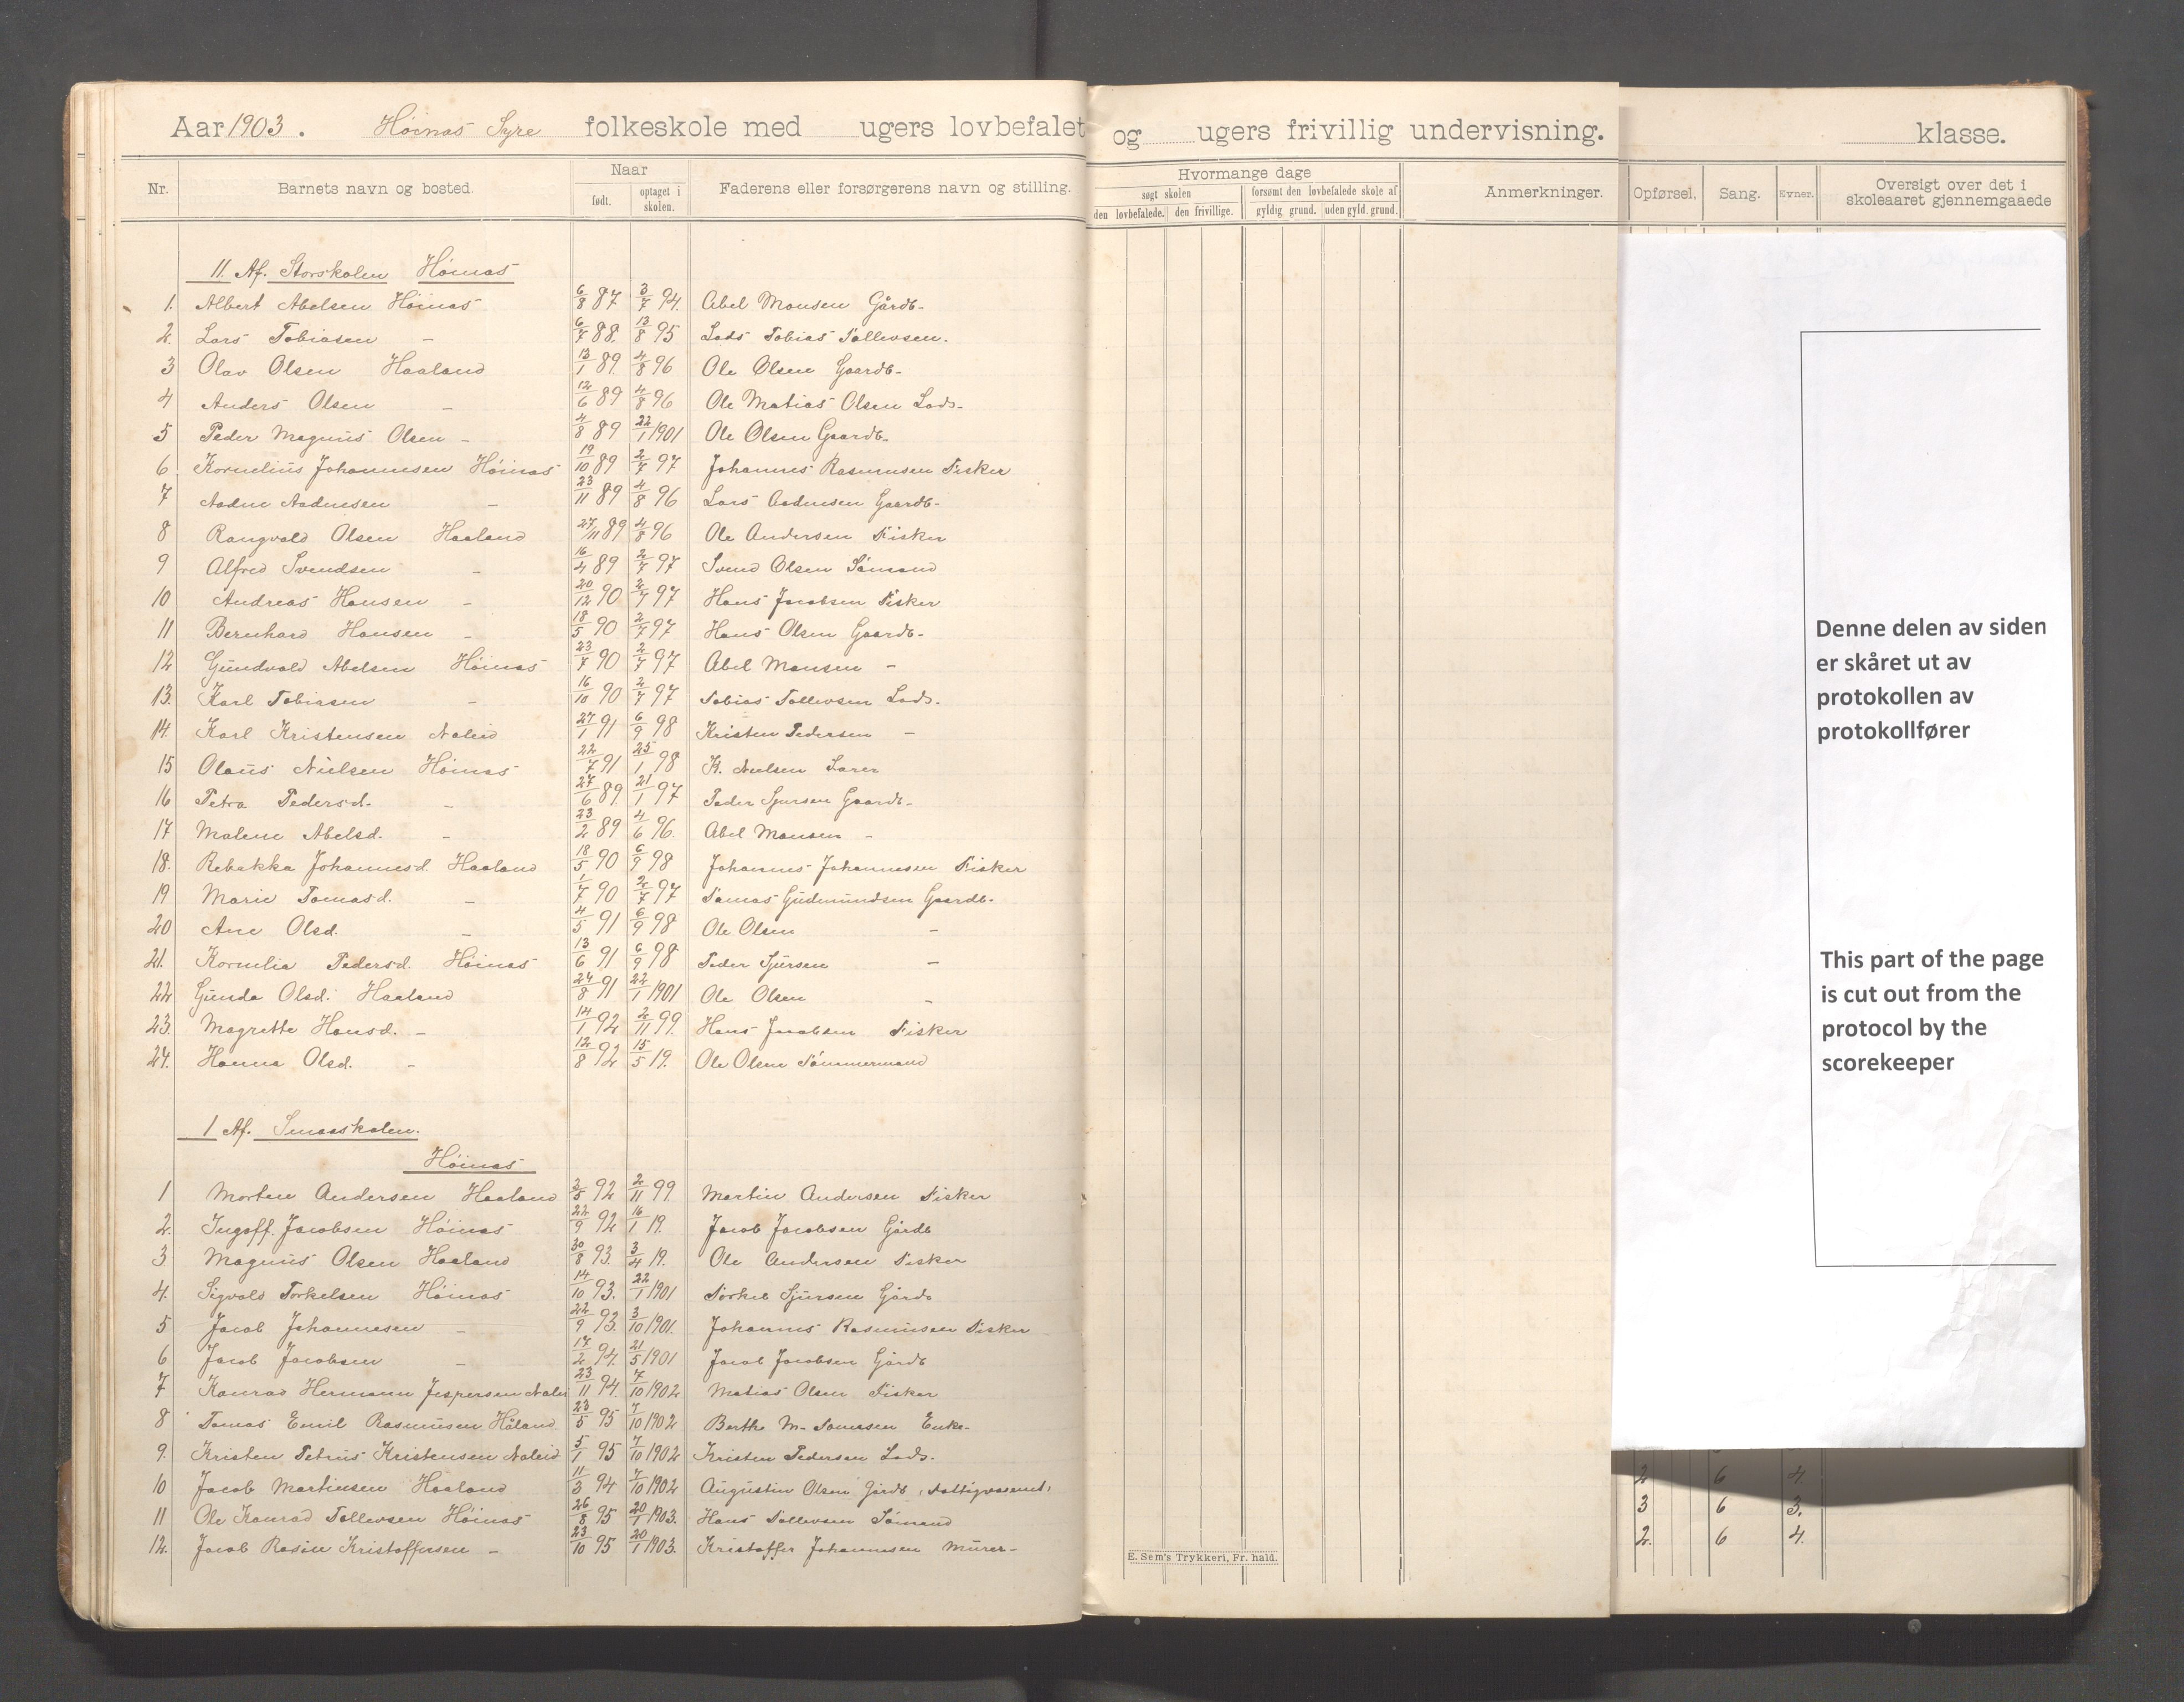 Aar 1903. Høinas Syre folkeskole med ugers lovbefalet og ugers frivillig undervisning. klasse.
Nr. Barnets navn og bosted. Naar født. optaget i skolen. Faderens eller forsørgerens navn og stilling. Hvormange dage søgt skolen den lovbefalede. den frivillige. forsømt den lovbefalede skole af gyldig grund. uden gyld. grund. Anmerkninger. Opførsel. Sang. Evner. Oversigt over det i skoleaaret gjennemgaaede
II. Af. Storskolen Høinas
1. Albert Abelsen Høinas 6/8 87 3/7 94. Abel Monsen Gårdb-
2. Lars Tobiasen - 6/7 88. 13/8 95 Lods Tobias Tollevsen.
3 Olav Olsen Haaland 13/1 89. 4/8 96 Ole Olsen Gaardb-
4 Anders Olsen - 12/6 89 4/8 96 Ole Matias Olsen Lods-
5 Peder Magnus Olsen - 4/8 89 22/1 1901 Ole Olsen Gaardb-
6 Kornelius Johannesen Høinas 19/10 89 2/7 97 Johannes Rasmusen Fisker
7 Aadne Aadnesen - 23/11 89 4/8 96 Lars Aadnesen Gaardb-
8 Rangvald Olsen Haaland 27/11 89 4/8 96 Ole Andersen Fisker
9 Alfred Svendsen - 16/4 89 2/7 97 Svend Olsen Sømand
10 Andreas Hansen - 20/12 90 2/7 97 Hans Jacobsen Fisker
11 Bernhard Hansen - 18/5 90 2/7 97 Hans Olsen Gaardb-
12 Gundvald Abelsen Høinas 23/7 90 2/7 97 Abel Monsen -
13. Karl Tobiasen - 16/10 90 2/7 97 Tobias Tollevsen Lods.
14. Karl Kristensen Naleid 27/1 91 6/9 98 Kristen Pedersen -
15 Olaus Nielsen Høinas 22/7 91 25/1 98 K. Nielsen Lærer
16 Petra Pedersd. - 27/6 89. 21/1 97 Peder Sjursen Gaardb-
17 Malene Abelsd. - 23/2 89 4/6 96. Abel Monsen -
18. Rebekka Johannesd. Haaland 18/5 90 6/9 98 Johannes Johannesen Fisker
19 Marie Tomasd. - 1/7 90 2/7 97 Tomas Gudmundsen Gaardb.
20 Ane Olsd. - 4/5 91 6/9 98 Ole Olsen -
21. Kornelia Pedersd. Høinas 13/6 91 6/9 98 Peder Sjursen -
22 Gunda Olsd. Haaland 24/8 91 22/1 1901 Ole Olsen -
23. Magrette Hansd. - 14/1 92 2/11 99. Hans Jacobsen Fisker
24. Hanna Olsd. - 12/8 92 15/5 19. Ole Olsen Tømmermand
I Af. Smaaskolen.
Høinas
1 Morten Andersen Haaland 2/8 92 2/11 99. Martin Andersen Fisker
2. Ingolf. Jacobsen Høinas 22/9 92 16/1 19. Jacob Jacobsen Gårdb
3 Magnus Olsen Haaland 30/8 93. 3/4 19. Ole Andersen Fisker
4. Sigvald Torkelsen Høinas 14/10 93. 22/1 1901 Torkel Sjursen Gårdb
5 Jacob Johannesen - 22/9 93. 3/10 1901. Johannes Rasmusen Fisker
6 Jacob Jacobsen - 17/2 94. 21/5 1901 Jacob Jacobsen Gårdb
7 Konrad Hermann Jespersen Nalei 23/11 94. 7/10 1902 Matias Olsen Fisker
8 Tomas Emil Rasmusen Håland 23/5 95 7/10 1902 Berthe M- Tomasen Enke-
9. Kristen Petrus Kristensen Naleid 5/1 95 7/10 1902 Kristen Pedersen Lods.
10 Jacob Martinsen Haaland 11/3 94 7/10 1902 Augustin Olsen Gårdb, Fattigvæsenet,
11 Ole Konrad Tollevsen Høinas 26/8 95 20/1 1903. Hans Tollevsen Sømand
12. Jacob Rasin Kristoffersen - 23/10 95 20/1 1903. Kristoffer Johannesen Murer-
E. Sem's Trykkeri, Fr. hald.
Denne delen av siden
er skåret ut av
protokollen av
protokollfører
This part of the page
is cut out from the
protocol by the
scorekeeper
2 6 4.
3 6 3.
2. 6 4.